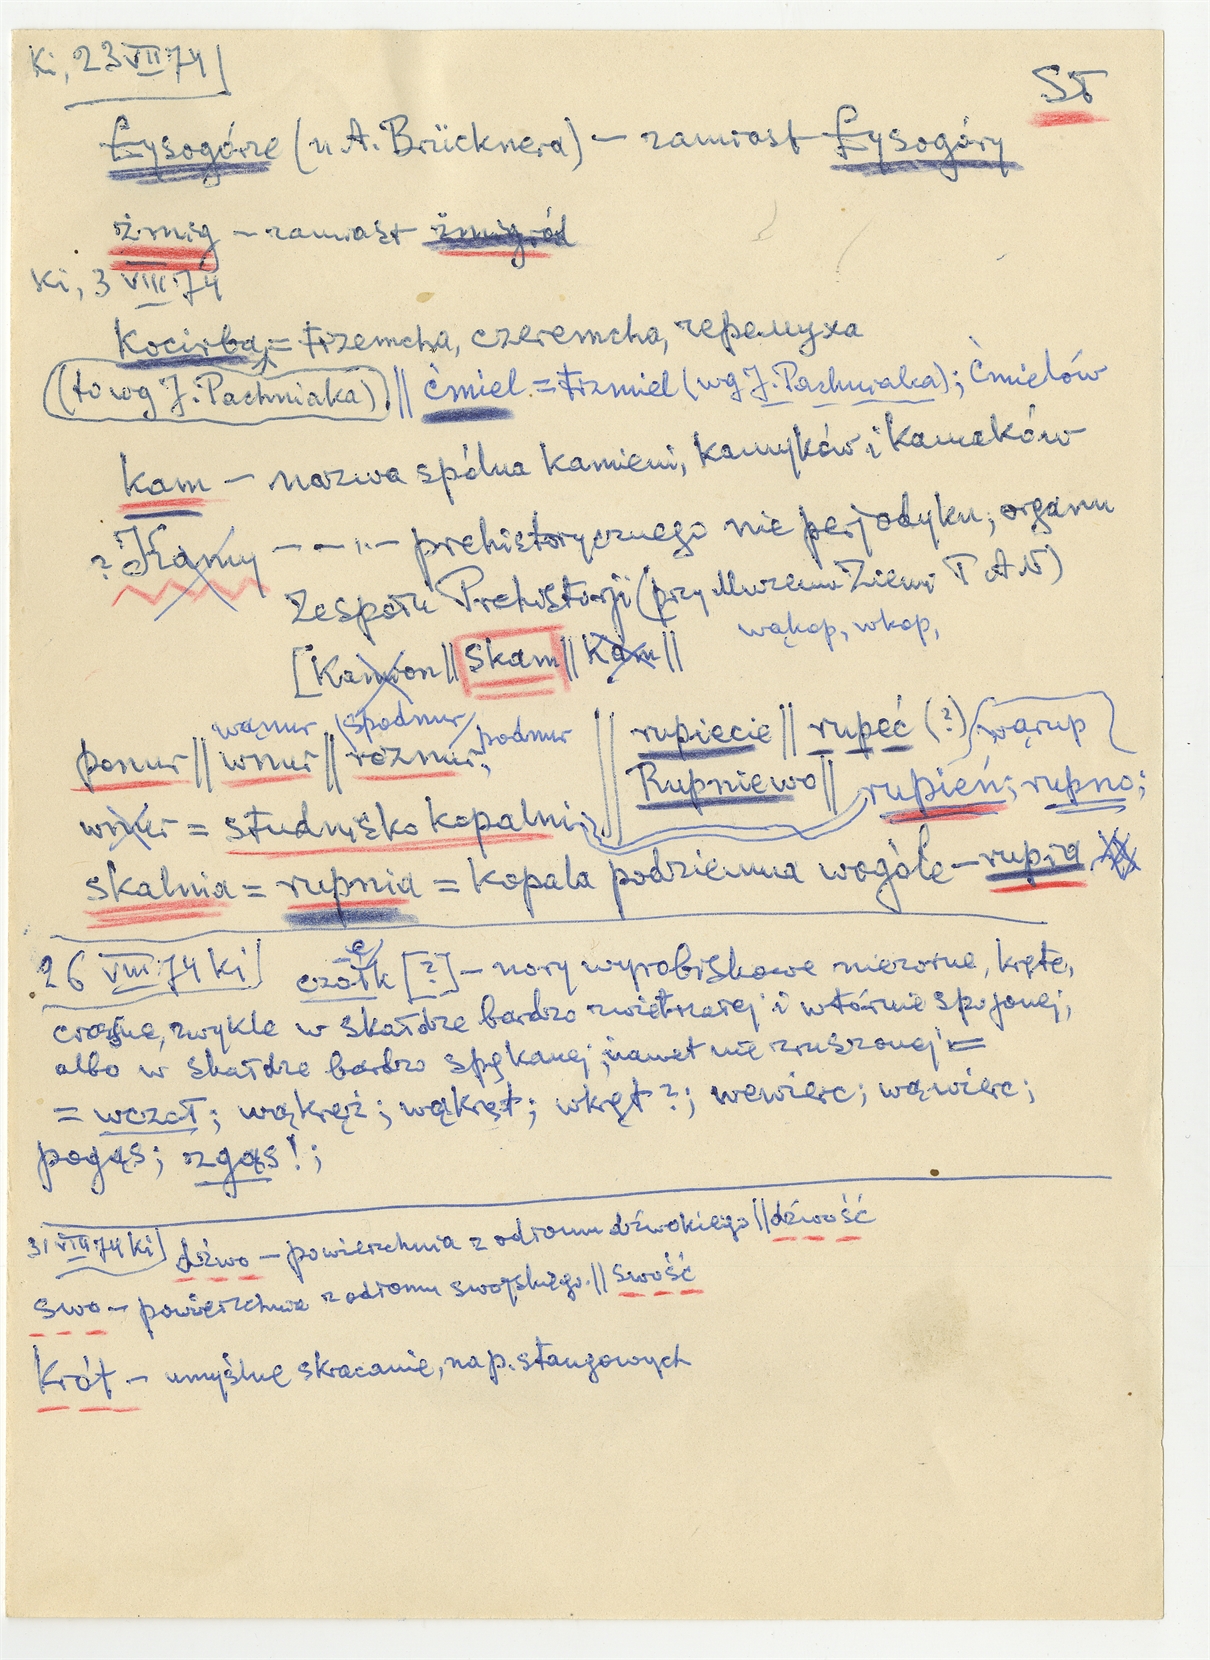 Ki, 23 VII 74
SŁ
Łysogórze (u A. Brücknera) – zamiast Łysogóry
żmig – zamiast żmigród
Ki, 3 VIII 74
kocirba = trzemcha, czeremcha, черемуха
(to wg J. Pachniaka) || ćmiel = trzmiel (wg J. Pachniaka); Ćmielów
kam – nazwa spólna kamieni, kamyków i kamaków
? Kamy – – „ – prehistorycznego nie perjodyku, organu
Zespołu Prehistorji (przy Muzeum Ziemi PAN)
wąkop, wkop,
[Kamion || Skam || Kam ||
wąnur (spodnur) podnur
ponur || wnur || roznur;
|| rupiecie || rupeć (?) wąrup
Rupniewo || rupień; rupno;
wnur = studnisko kopalni;
skalnia = rupnia = kopala podziemna wogóle – rupia
26 VIII 74 Ki czołk [?] – nory wyrobiskowe niezorne, kręte,
ciasne, zwykle w skałdze bardzo zwietrzałej i wtórnie spojonej,
albo w skałdze bardzo spękanej, nawet nie zruszonej =
= wczoł; wąkręż; wąkręt; wkręt?; wewierc; wąwierc;
pogąs; zgąs!;
31 VIII 74 Ki dźwo – powierzchnia z odłomu dźwokiego || dźwość
swo – powierzchnia z odłomu swojskiego. || swość
krót – umyślne skracanie, na p. stangowych